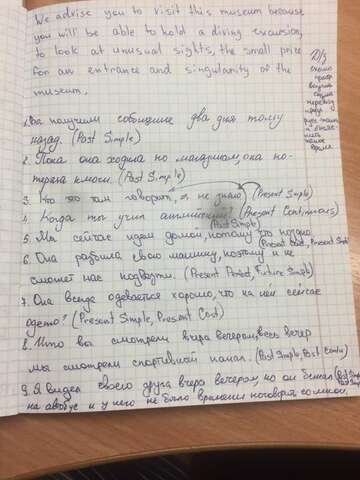 We advise you to visit this museum because
you will be able to hold a diving excursion,
to look at unusual sights, the small price
for an entrance and singularity of the
museum.
Д/з
1. Вы получили сообщение два дня тому
назад. (Past Simple)
2. Пока она ходила по магазинам, она по-
теряла ключи. (Past Simple)
3. Кто это там говорит, я не знаю (Present Simple)
4. Когда ты учил английский? (Present Continuous)
(Past Simple)
5. Мы сейчас идем домой, потому что поздно
(Present Cont., Present Simple)
6. Она разбила свою машину, поэтому и не
сможет нас подвезти. (Present Perfect, Future Simple)
7. Она всегда одевается хорошо, что на ней сейчас
одето? (Present Simple, Present Cont)
8. Что вы смотрели вчера вечером, весь вечер
мы смотрели спортивный канал. (Past Simple, Past Contin)
9. Я видел своего друга вчера вечером, но он бежал (Past Simple
на автобус и у него не было времени поговорить со мной.